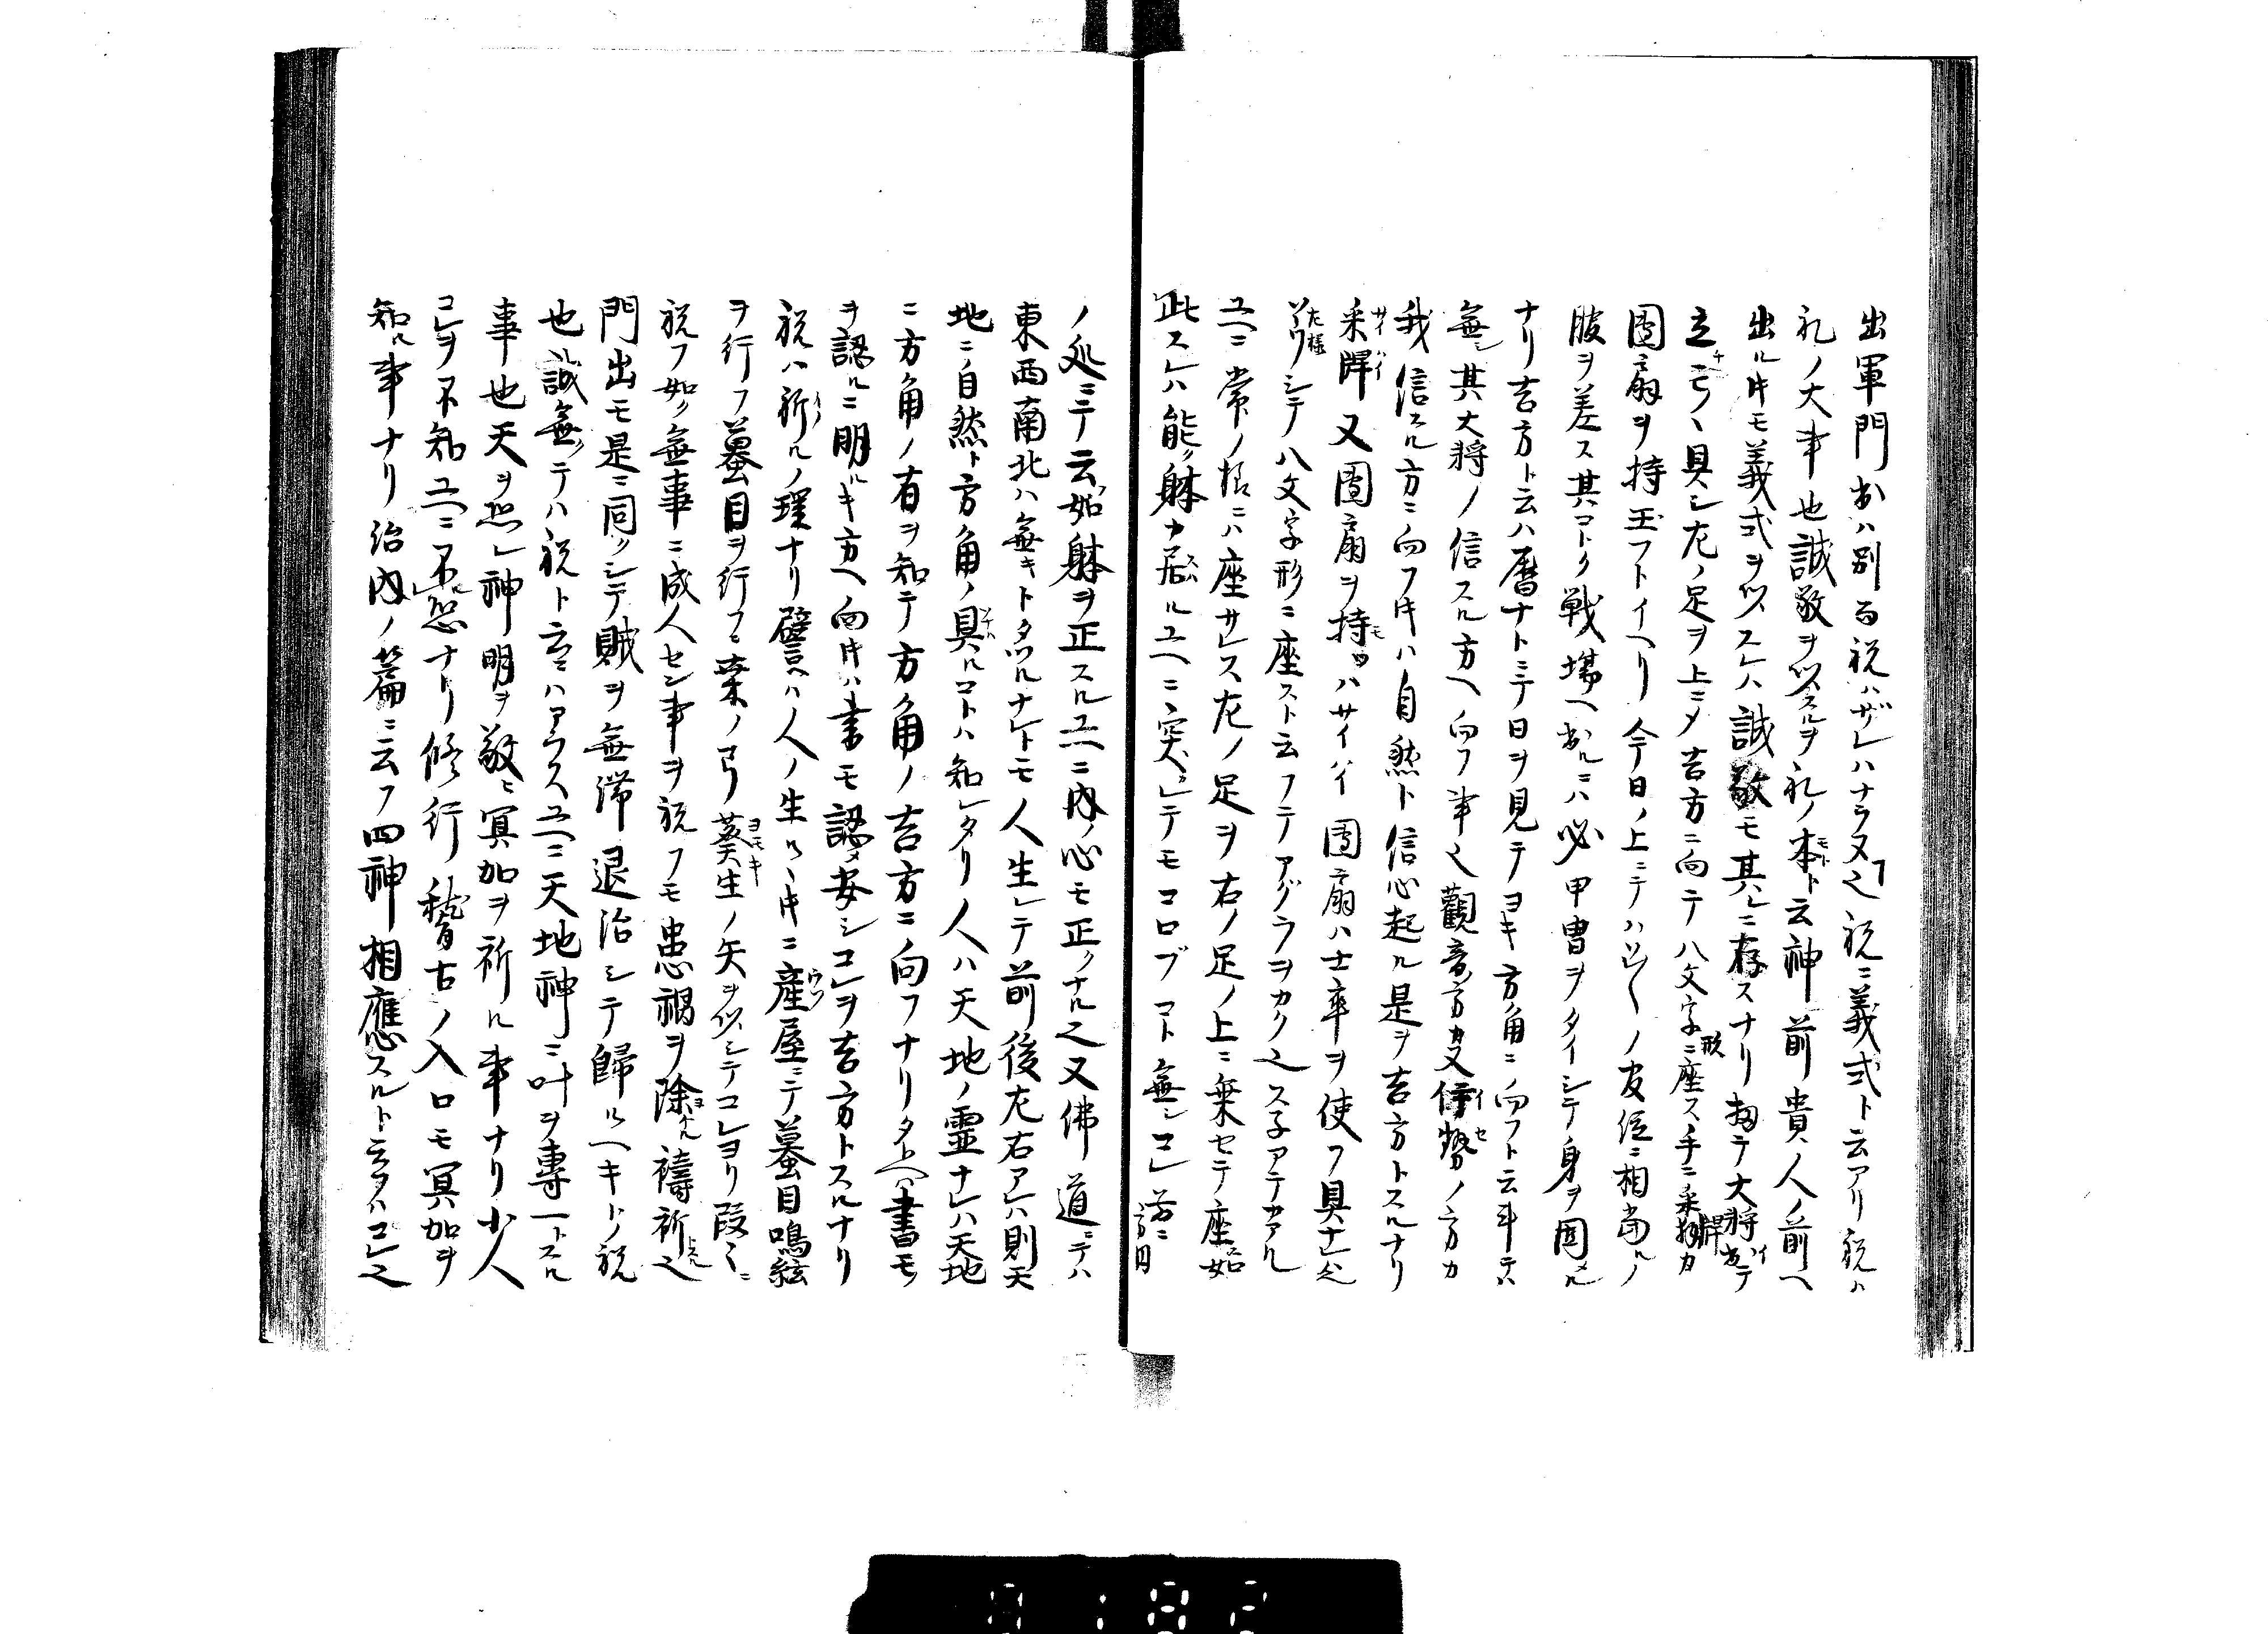 出軍門出ハ別而祝ハザレハナラヌ之祝ニ義式ト云アリ祝ハ
礼ノ大事也誠敬ヲ以スルヲ礼ノ本ト云神前貴人ノ前ヘ
出ル片モ義式ヲ以スレハ誠敬モ其レニ存スナリ扨テ大将出テ
立弓ヽ具シ左ノ足ヲ上ニメ吉方ニ向テ八文字形ニ座ス手ニ采牌カ
團扇ヲ持玉フトイヘリ今日ノ上ニテハ以〳〵ノ友位ニ相當ルノ
腹ヲ差ス其コトク戦場ヘ出ルニハ必甲冑ヲタイシテ身ヲ固メル
ナリ吉方ト云ハ暦ナトニテ日ヲ見テヨキ方角ニ向フト云事テハ
無シ其大将ノ信スル方ヘ向フ事之觀音ノ方カ又伊勢ノ方カ
我信スル方ニ向フ片ハ自然ト信心起ル是ヲ吉方トスルナリ
采牌又團扇ヲ持ツハサイハイ團扇ハ士卒ヲ使フ具ナレハ也
左様アリシテ八文字形ニ座スト云フテアグラヲカク之ス子アテカアル
ユヘニ常ノ様ニハ座サレス左ノ足ヲ右ノ足ノ上ニ乗セテ座如
此スレハ能ク躰カ居ルユヘニ突レテモコロブコト無シコレ
ノ処ニテ云如躰ヲ正スルユヘニ内ノ心モ正クナル之又佛道ニテハ
東西南北ハ無キトタツルナレトモ人生レテ前後左右アレハ則天
地ニ自然ト方角ノ具ルコトハ知レタリ人ハ天地ノ霊ナレハ天地
ニ方角ノ有ヲ知テ方角ノ吉方ニ向フナリタトヘハ書モノ
ヲ認ルニ明ルキ方ヘ向片ハ書モ認メ安シコレヲ吉方トスルナリ
祝ハ祈ルノ理ナリ譬ヘハ人ノ生ルヽ片ニ産屋ニテ蟇目鳴絃
ヲ行フ蟇目ヲ行フニ桑ノ弓蓬生ノ矢ヲ以シテコレヨリ段々ニ
祝フ如ク無事ニ成人セン事ヲ祝フモ患禍ヲ除ケル祷祈之
門出モ是ニ同クシテ賊ヲ無滞退治シテ歸ルヘキトノ祝
也誠無クテハ祝ト云ニハアラスユヘニ天地神ニ叶ヲ專一トスル
事也天ヲ恐レ神明ヲ敬ヒ冥加ヲ祈ル事ナリ少人
コレヲ不知ユヘニ不恐ナリ修行稽古ノ入口モ冥加ヲ
知ル事ナリ治内ノ篇ニ云フ四神相應スルト云ハコレ之